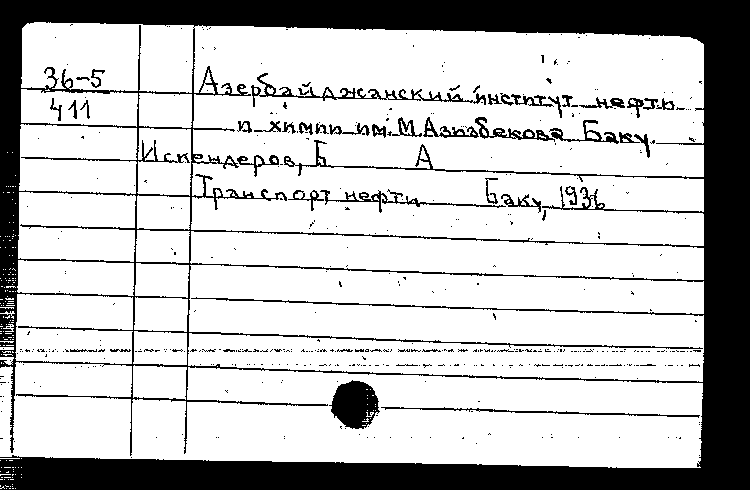 36-5
411
Азербайджанский институт нефти
и химии им. М. Азизбекова Баку.
Искендеров, Б А
Транспорт нефти Баку, 1936